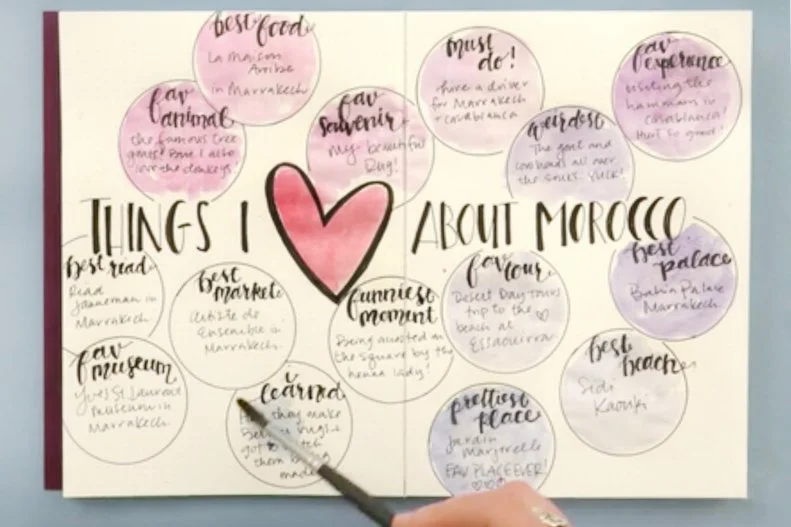 best food
La Maison
Arabe
in Marrakech
fav
animal
the famous tree
goats! But I also
love the donkeys!
fav
souvenir
my beautiful
Rug!
must
do!
have a driver
for Marrakech
+ Casablanca
weirdest
The goat and
cow heads all over
the souks. YUCK!
fav
experience
visiting the
hammam in
Casablanca!
THINGS I
ABOUT MOROCCO
best read
Read
in
Marrakech
best
market
Artiste de
Ensemble in
Marrakech.
funniest
moment
Being accosted in
the square by the
henna lady!
fav
tour
Desert Day Tours
trip to the
beach at
Essaouirra
best
palace
Bahia Palace
Marrakech.
fav
museum
Yves St. Laurent
Museum in
Marrakech.
i
learned
they make
rugs
got to
them being
made
prettiest
place
Jardin
Marjorelle
FAV PLACE EVER!
best
beach
Sidi
Kaouki